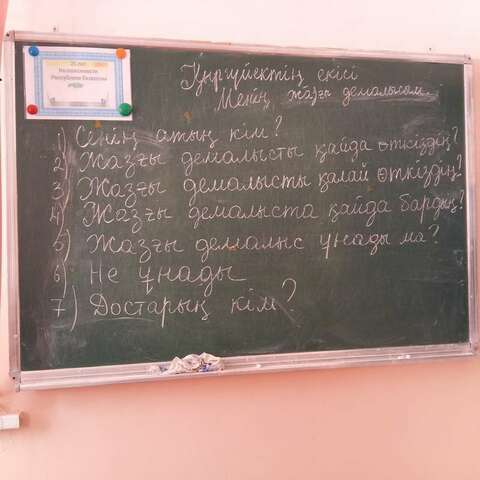 25 лет
Независимости
Республики Казахстан
Қыргүйектің екісі
Менің жазғы демалысым.
1) Сенің атың кім?
2) Жазғы демалысты қайда өткіздің?
3) Жазғы демалысты қалай өткіздің?
4) Жазғы демалыста қайда бардың?
5) Жазғы демалыс ұнады ма?
6) Не ұнады
7) Достарың кім?